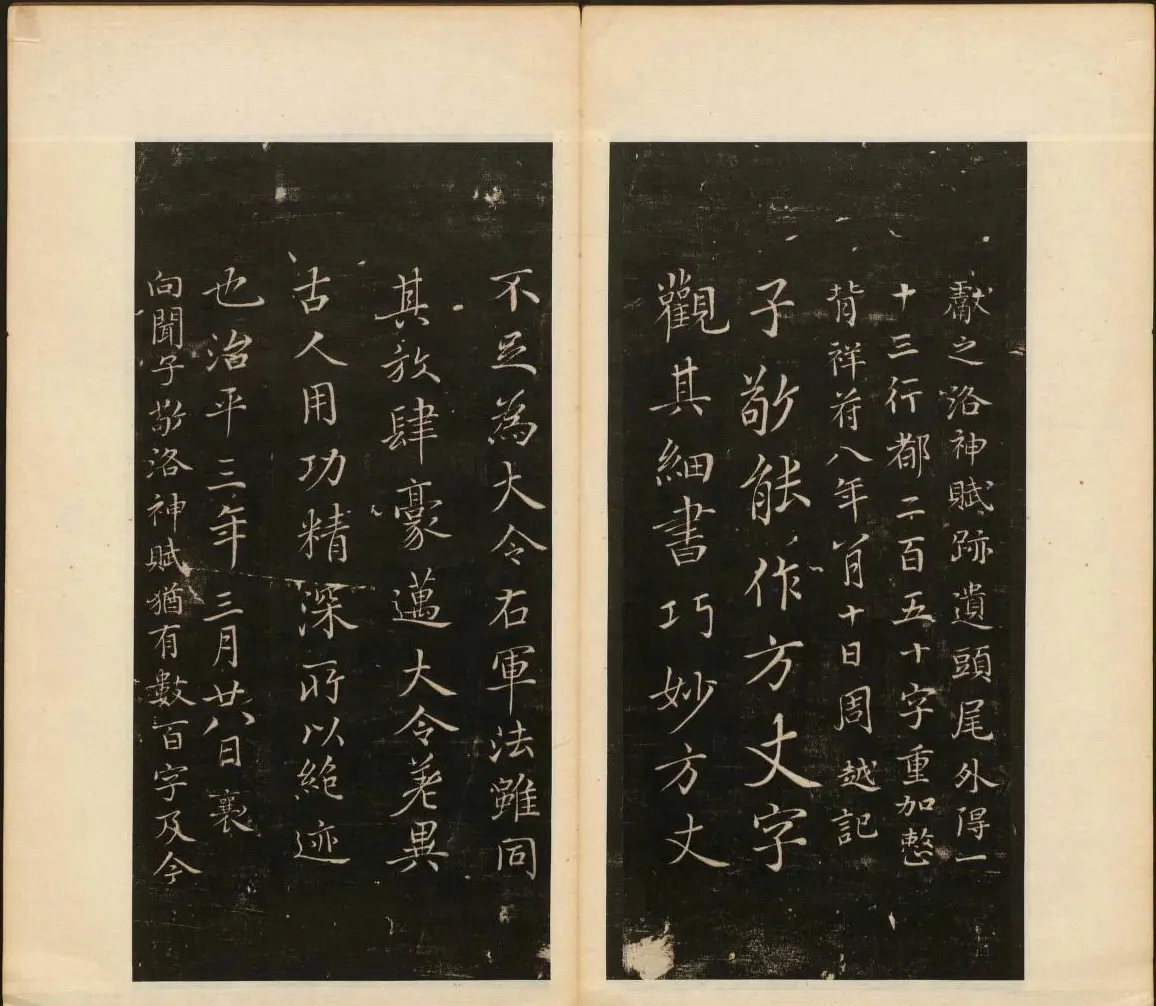 獻之洛神賦跡遺頭尾外得一
十三行都二百五十字重加整
背祥符八年月十日周越記
子敬能作方丈字
觀其細書巧妙方丈
不足為大令右軍法雖同
其放肆豪邁大令差異
古人用功精深所以絶迹
也治平三年三月廿八日襄
向聞子敬洛神賦猶有數百字及今